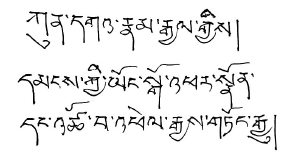 ཀུན་དགའ་རྣམ་རྒྱལ་གྱིས།
དམངས་ཀྱི་ཡོང་སྒོ་འཕར་སྣོན་
དང་འཚོ་བ་འཕེལ་རྒྱས་གཏོང་རྒྱུ།